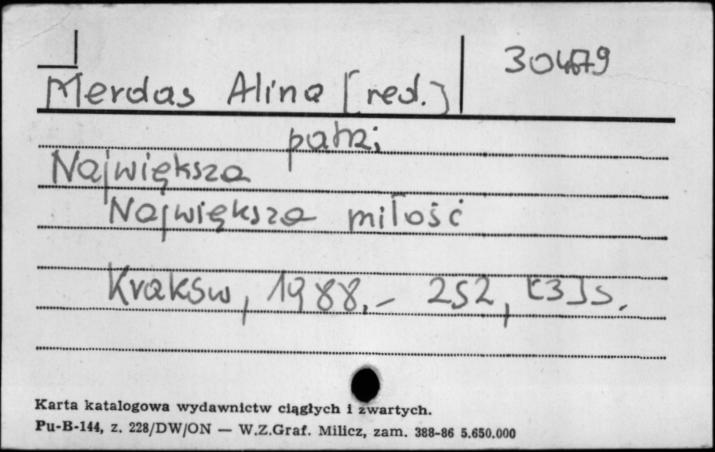 30479
Merdas Alina [red.]
patrz:
Największa
Największa miłość
Kraków, 1988.- 252, [3]s.
Karta katalogowa wydawnictw ciągłych i zwartych.
Pu-B-144, z. 228/DW/ON — W.Z.Graf. Milicz, zam. 388-86 5.650.000